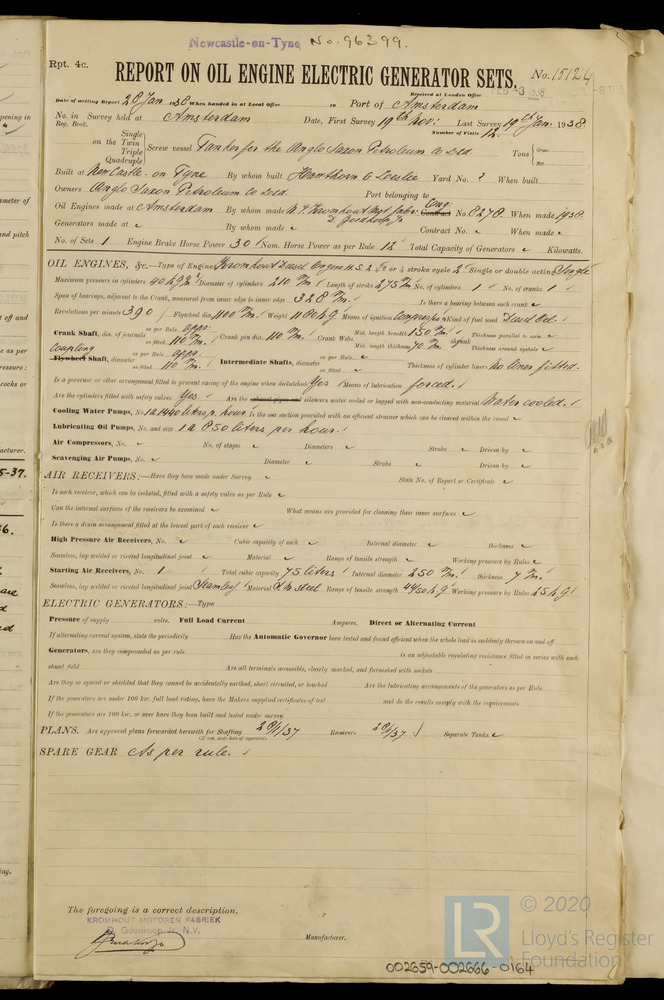 Newcastle-on-Tyne No. 96399.
Rpt. 4c.
REPORT ON OIL ENGINE ELECTRIC GENERATOR SETS.
No. 15124
Received at London Office
FEB -3 1938
Date of writing Report 28 Jan 1938 When handed in at Local Office 19 Port of Amsterdam
No. in Reg. Book. Survey held at Amsterdam Date, First Survey 19th Nov: Last Survey 19th Jan: 1938
Number of Visits 12.
Single
on the Twin
Triple
Quadruple
Screw vessel Tanker for the Anglo Saxon Petroleum Co Ltd.
Tons Gross
Net
Built at New Castle-on-Tyne By whom built Hawthorn & Leslie Yard No. ? When built
Owners Anglo Saxon Petroleum Co Ltd. Port belonging to
Oil Engines made at Amsterdam By whom made Kromhout Mot. fabr: D. Goedkoop Jr Eng: Contract No. 8278. When made 1938.
Generators made at By whom made Contract No. When made
No. of Sets 1 Engine Brake Horse Power 30 Nom. Horse Power as per Rule 12 Total Capacity of Generators Kilowatts.
OIL ENGINES, &c.—Type of Engine Kromhout Diesel Engine H.S. 2. 2 or 4 stroke cycle 2 Single or double acting Single
Maximum pressure in cylinders 40 Diameter of cylinders 210 m/m Length of stroke 275 m/m No. of cylinders 1 No. of cranks 1
Span of bearings, adjacent to the Crank, measured from inner edge to inner edge 328 m/m. Is there a bearing between each crank
Revolutions per minute 390 Flywheel dia. 1100 m/m. Weight 1180 kg Means of ignition Compression Kind of fuel used Diesel Oil.
Crank Shaft, dia. of journals as per Rule appr: as fitted 110 m/m Crank pin dia. 110 m/m. Crank Webs Mid. length breadth 150 m/m Mid. length thickness 70 m/m shrunk Thickness parallel to axis Thickness around eyehole
Coupling
Flywheel Shaft, diameter as per Rule appr: as fitted 110 m/m. Intermediate Shafts, diameter as per Rule as fitted Thickness of cylinder liners No liner fitted.
Is a governor or other arrangement fitted to prevent racing of the engine when declutched Yes Means of lubrication forced.
Are the cylinders fitted with safety valves Yes Are the exhaust pipes and silencers water cooled or lagged with non-conducting material Water cooled.
Cooling Water Pumps, No. 1 a 1440 liters p. hour. Is the sea suction provided with an efficient strainer which can be cleared within the vessel
Lubricating Oil Pumps, No. and size 1 a 850 liters per hour.
Air Compressors, No. No. of stages Diameters Stroke Driven by
Scavenging Air Pumps, No. Diameter Stroke Driven by
AIR RECEIVERS:—Have they been made under Survey State No. of Report or Certificate
Is each receiver, which can be isolated, fitted with a safety valve as per Rule
Can the internal surfaces of the receivers be examined What means are provided for cleaning their inner surfaces
Is there a drain arrangement fitted at the lowest part of each receiver
High Pressure Air Receivers, No. Cubic capacity of each Internal diameter thickness
Seamless, lap welded or riveted longitudinal joint Material Range of tensile strength Working pressure by Rules
Starting Air Receivers, No. 1 Total cubic capacity 75 liters Internal diameter 250 m/m. thickness 7 m/m.
Seamless, lap welded or riveted longitudinal joint Seamless. Material S.M. steel Range of tensile strength 44/50 kg. Working pressure by Rules 25 kg
ELECTRIC GENERATORS:—Type
Pressure of supply volts. Full Load Current Amperes. Direct or Alternating Current
If alternating current system, state the periodicity Has the Automatic Governor been tested and found efficient when the whole load is suddenly thrown on and off
Generators, are they compounded as per rule is an adjustable regulating resistance fitted in series with each
shunt field Are all terminals accessible, clearly marked, and furnished with sockets
Are they so spaced or shielded that they cannot be accidentally earthed, short circuited, or touched Are the lubricating arrangements of the generators as per Rule
If the generators are under 100 kw. full load rating, have the Makers supplied certificates of test and do the results comply with the requirements
If the generators are 100 kw. or over have they been built and tested under survey
PLANS. Are approved plans forwarded herewith for Shafting 28/1/37 Receivers 28/1/37 Separate Tanks
(If not, state date of approval)
SPARE GEAR As per rule.
The foregoing is a correct description,
KROMHOUT MOTOREN FABRIEK
D. Goedkoop Jr. N.V.
Manufacturer.
002659-002666-0164
LR
© 2020
Lloyd's Register
Foundation